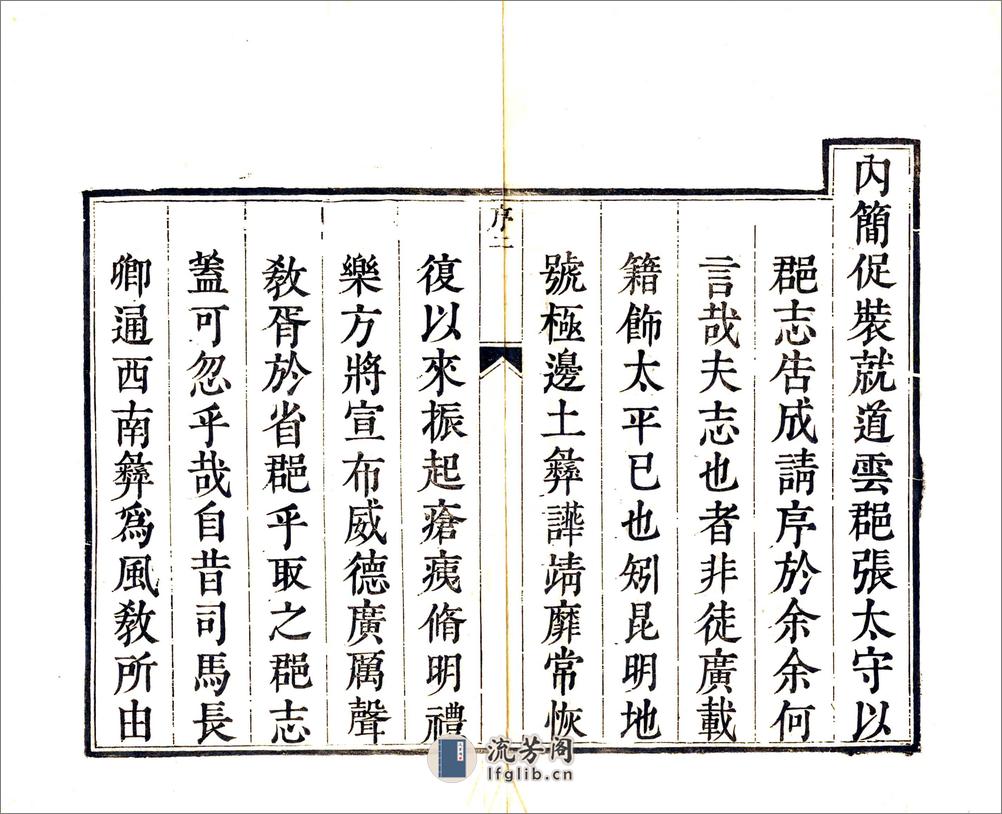 内簡促裝就道雲郡張太守以
郡志告成請序於余余何
言哉夫志也者非徒廣載
籍飾太平已也矧昆明地
號極邊土彝譁靖靡常恢
序二
復以來振起瘡痍脩明禮
樂方將宣布威德廣厲聲
敎胥於省郡乎取之郡志
葢可忽乎哉自昔司馬長
卿通西南彝爲風敎所由
流芳阁
lfglib.cn